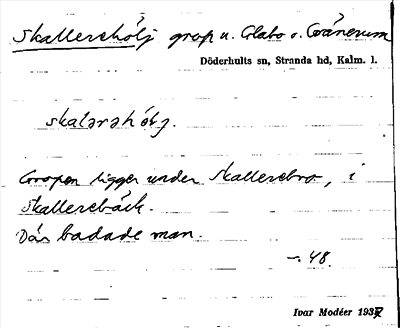 Skallerehölj grop u. Glabo o. Gränerum
Döderhults sn, Stranda hd, Kalm. l.
skalarahölj.
Gropen ligger under Skallerebro, i
Skallerebäck.
Där badade man.
-. 48.
Ivar Modéer 1937